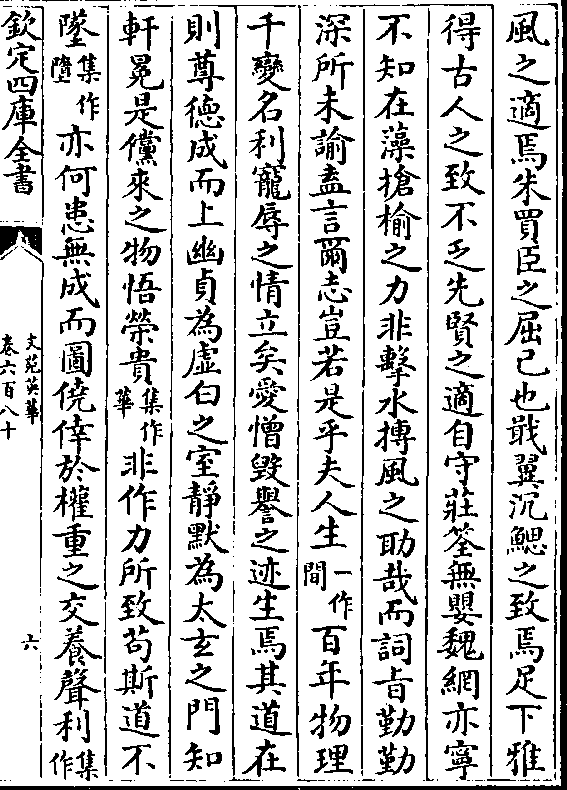 風之適焉朱買臣之屈己也戢翼沉鰓之致焉足下雅
得古人之致不乏先賢之適自守莊筌無嬰魏網亦寧
不知在藻搶榆之力非擊水摶風之助哉而詞旨勤勤
深所未諭盍言爾志豈若是乎夫人生一作間百年物理
千變名利寵辱之情立矣愛憎毀譽之迹生焉其道在
則尊德成而上幽貞為虛白之室靜默為太玄之門知
軒冕是儻來之物悟榮貴集作華非作力所致苟斯道不
墜集作墮亦何患無成而圖僥倖於權重之交養聲利集作
欽定四庫全書
文苑英華
卷六百八十
六